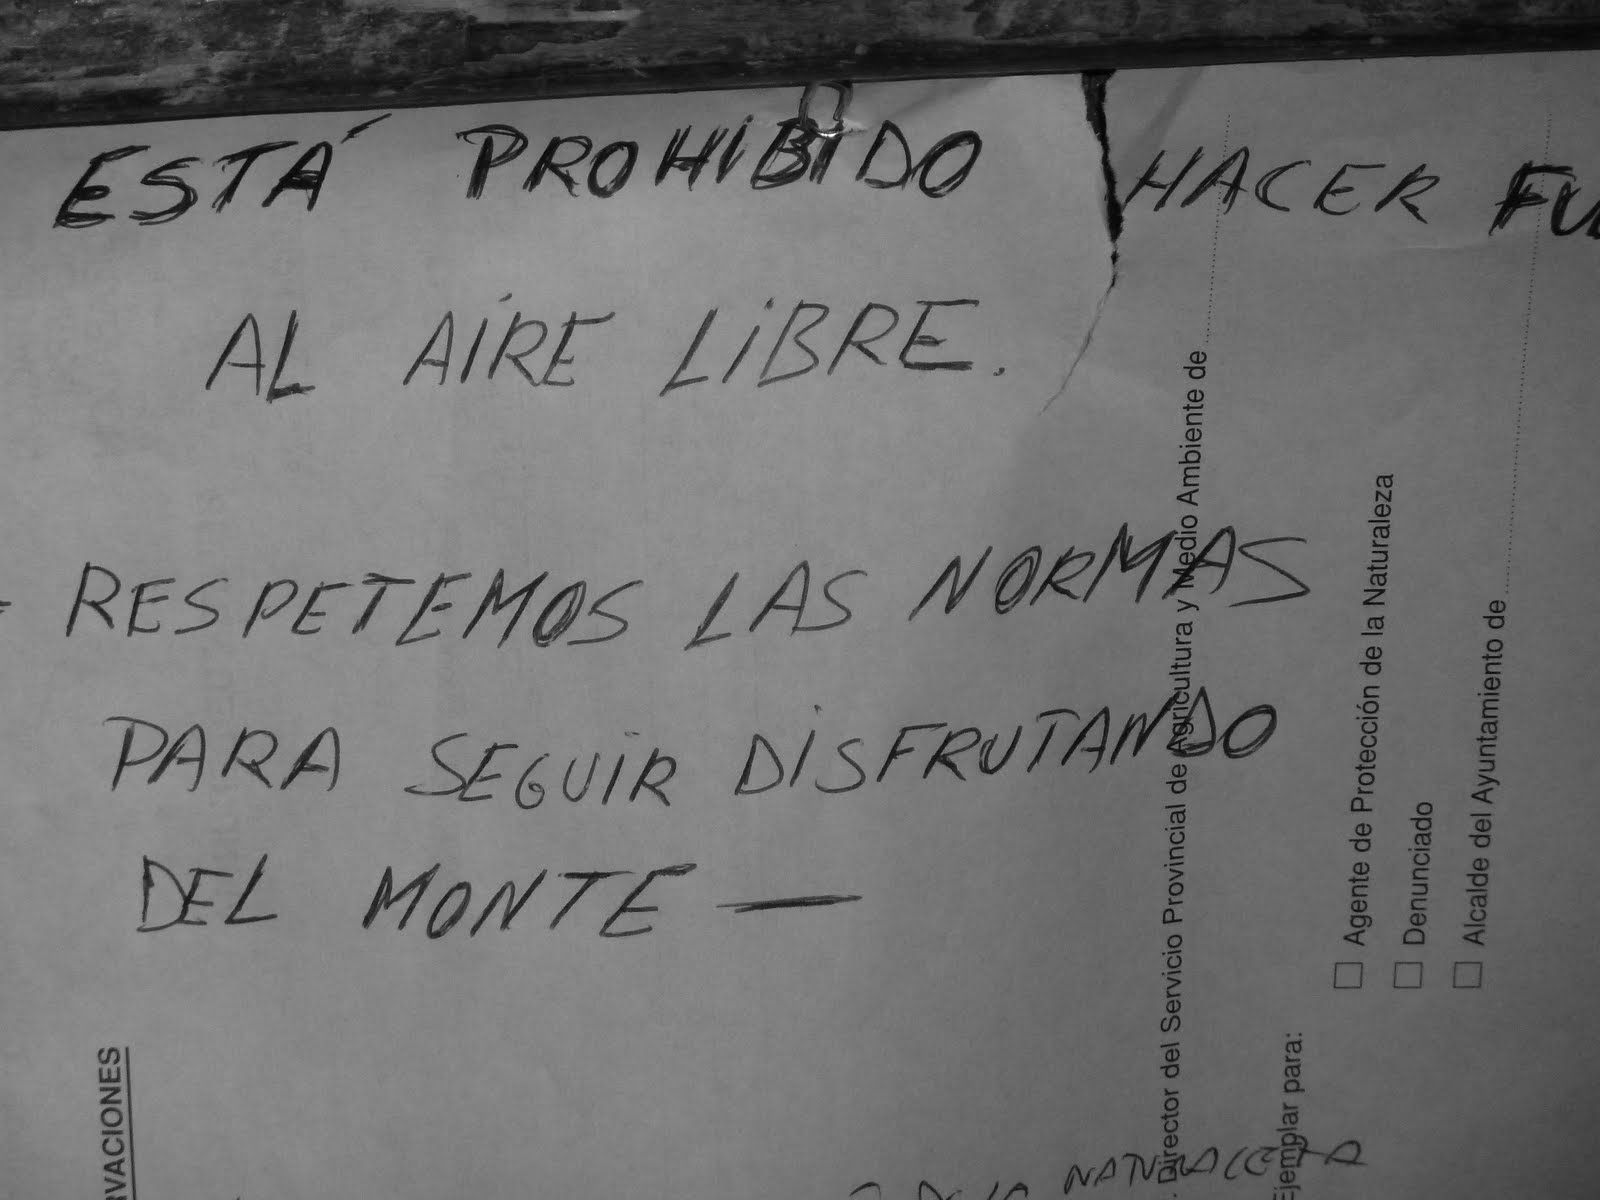 ESTÁ PROHIBIDO HACER FU
AL AIRE LIBRE.
- RESPETEMOS LAS NORMAS
PARA SEGUIR DISFRUTANDO
DEL MONTE —
RVACIONES
. Director del Servicio Provincial de Agricultura y Medio Ambiente de
Ejemplar para:
☐ Agente de Protección de la Naturaleza
☐ Denunciado
☐ Alcalde del Ayuntamiento de
DE LA NATURALEZA